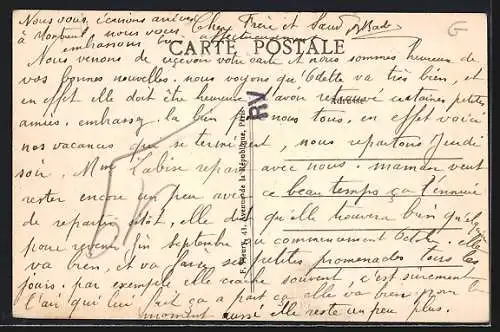 Nous vous écrivons
à nous vous Cher Frère et Sœur
embrassons affectueusement
CARTE POSTALE
Nous venons de recevoir votre carte et nous sommes heureux de
vos bonnes nouvelles. nous voyons qu'Odette va très bien, et
en effet elle doit être heureuse d'avoir retrouvé certaines petites
Adresse
amies. embrassez la bien fort nous tous. en effet voici
nos vacances qui se terminent, nous repartons jeudi
soir. Mme repart avec nous. maman veut
rester encore un peu avec ce beau temps ça l'ennuie
de repartir elle dit qu'elle trouvera bien quelqu'un
pour revenir fin septembre ou commencement Octobre. elle
va bien, et va faire ses petites promenades tous les
jours. par exemple elle souvent, c'est sûrement
l'air qui lui fait ça à part ça elle va bien pour le
moment aussi elle reste un peu plus.
RV
F. Fleury, 41, Avenue de la République, Paris
G